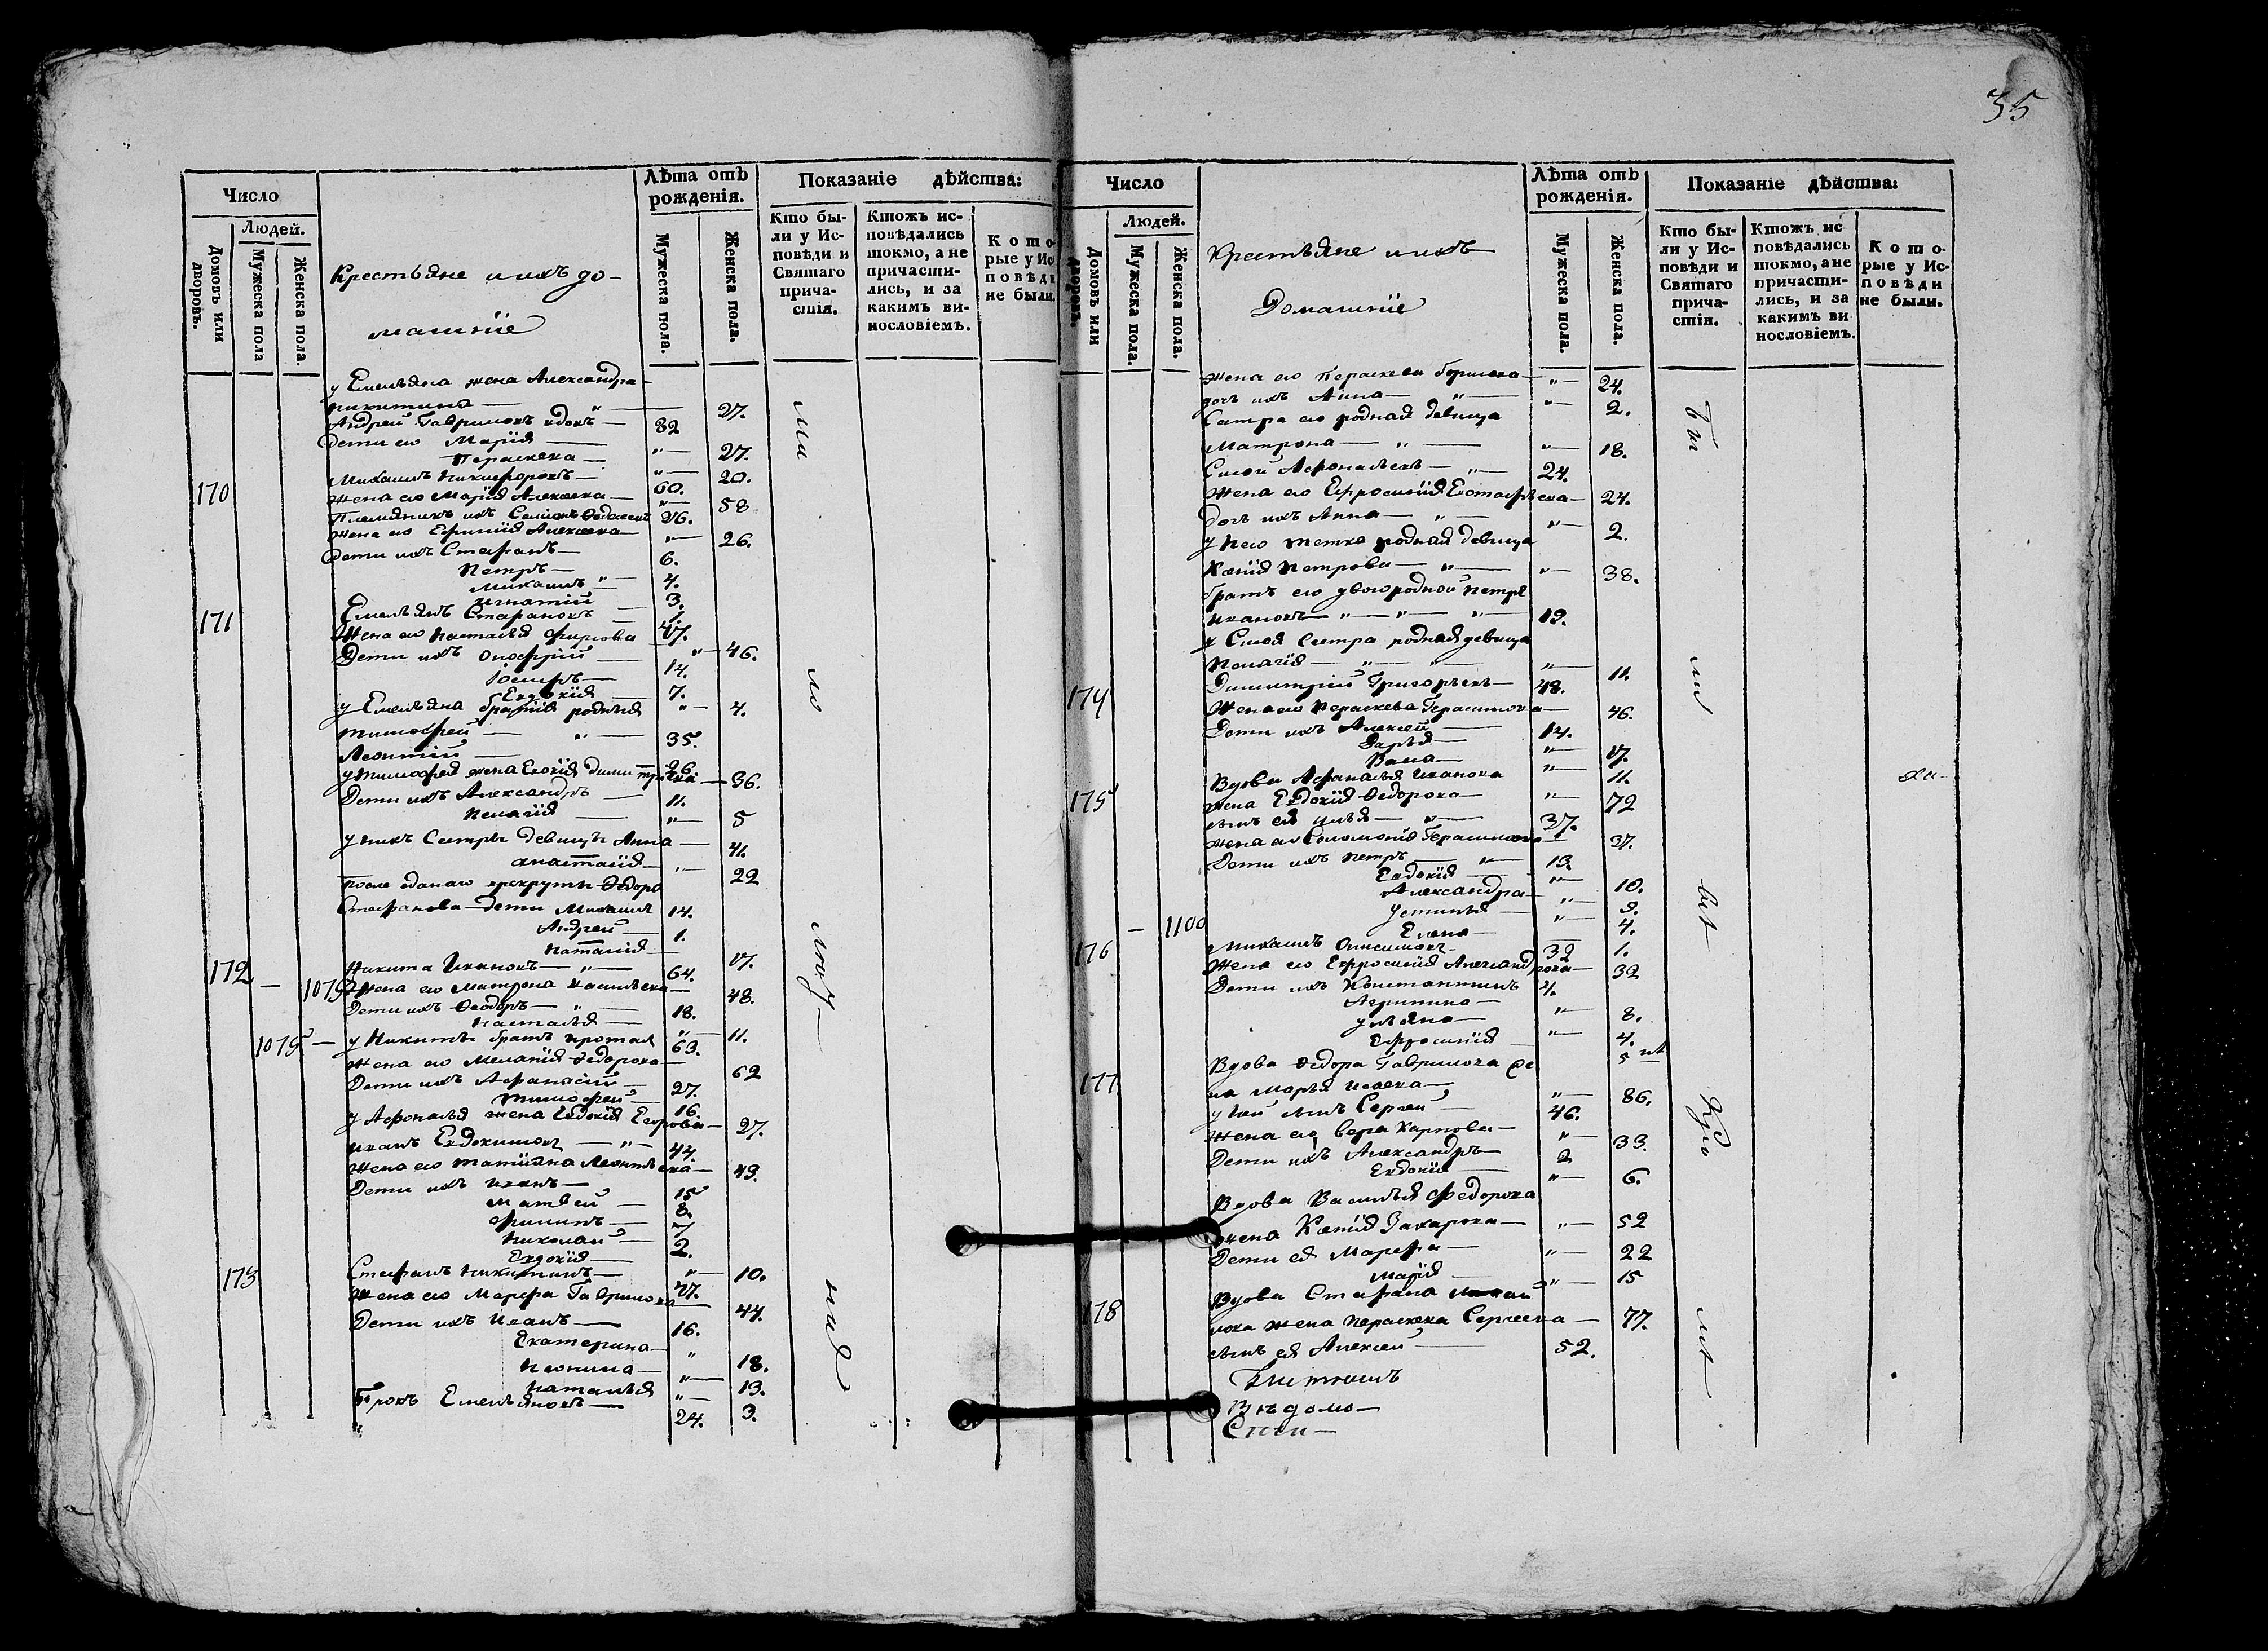 35
Число
Людей.
Домовъ или дворовъ.
Мужеска пола
Женска пола.
Крестьяне и ихъ до-
машніе
Лѣта отъ рожденія.
Мужеска пола.
Женска пола.
Показаніе дѣйства:
Кто бы-
ли у Ис-
повѣди и
Святаго
прича-
стія.
Ктожъ ис-
повѣдались
токмо, а не
причасти-
лись, и за
какимъ ви-
нословіемъ.
Кото-
рые у Ис-
повѣди
не были.
у Емельяна жена Александра
никитина — 27.
Андрей Гавриловъ вдовъ — 82
Дети его Марія — " — 27.
Параскева — " — 20.
170 Михаилъ Никифоровъ — 60.
Жена его Марія Алексеева — " — 58
Племянникъ ихъ Семіонъ 26.
Жена его Алексеева — " — 26.
Дети ихъ Стефанъ — 6.
Петръ — 4.
Михаилъ " — 3.
Игнатій
171 Емельянъ Стефановъ — 47.
Жена его Наталья " — 46.
Дети ихъ Онофрій — 14.
Іосифъ — 7.
Евдокія — " — 4.
у Емельяна братія родныя
Тимофей — " — 35.
Леонтій — 26.
у Тимофея жена Димитріева — 36.
Дети ихъ Александръ — 11.
Пелагія — " — 5
у нихъ Сестры девицы Анна — 41.
Анастасія — " — 22
После рекруты Федора
Стефанова дети Михаилъ 14.
Андрей — 1.
Наталія — 17.
172 — 1079 Никита Ивановъ — " — 64.
Жена его Матрона — 48.
Дети ихъ Феодоръ — " — 18.
Наталья — " — 11.
1075 — у Никиты братъ 63.
Жена его Меланія Федорова — 62
Дети ихъ Афанасій — 27.
Тимофей — 16.
у Афонасья жена Евдокія Егорова — 27.
Иванъ Евдокимовъ — " — 44.
Жена его Татіяна Леонтьева — 43.
Дети ихъ Иванъ — 15
Матвей — 8.
Филипъ — 7
Николай — 2.
Евдокія — " — 10.
173 Стефанъ Никитинъ — 47.
Жена его Марфа Гаврилова — 44.
Дети ихъ Иванъ — 16.
Екатерина — " 18.
" — 13.
Наталья " — 3.
Емельяновъ — 24.
Число
Людей.
Домовъ или дворовъ.
Мужеска пола.
Женска пола.
Крестьяне и ихъ
Домашніе
Лѣта отъ рожденія.
Мужеска пола.
Женска пола.
Показаніе дѣйства:
Кто бы-
ли у Ис-
повѣди и
Святаго
прича-
стія.
Ктожъ ис-
повѣдались
токмо, а не
причасти-
лись, и за
какимъ ви-
нословіемъ.
Кото-
рые у Ис-
повѣди
не были.
Жена его Параскева Борисова — " — 24.
дочь ихъ Анна — " — 2.
Сестра его родная девица
Матрона — " — 18.
Афонасьевъ — " — 24.
Жена его Ефросинія Евстафьева — 24.
дочь ихъ Анна — " — 2.
у него тетка родная девица
Ксенія Петрова — " — 38.
братъ его двоюродной Петръ
Ивановъ — " — 19.
Сестра родная девица
Пелагія — " — 11.
174 Димитрій Григорьевъ — 48.
Жена его Параскева Герасимова — 46.
Дети ихъ Алексей — 14.
Дарья — " — 17.
" — 11.
175 Вдова Афанасья Иванова
жена Евдокія Федорова — " — 72
сынъ ея Илья — " — 37.
Жена его Соломонія Герасимова — 37.
Дети ихъ Петръ — " — 13.
Евдокія — " — 10.
Александра — " — 9.
Устинья — " — 4.
— 1100 Елена — 1.
176 Михаилъ Онисимовъ — 32
Жена его Ефросинія Александрова — 32
Дети ихъ Константинъ 4.
Агрипина — " — 8.
Ульяна — " — 4.
Ефросинія —
177 Вдова Федора Гаврилова же
на Марья Исаева — " — 86.
у ней сынъ Сергей — 46.
Жена его Вера Карпова — " — 33.
Дети ихъ Александръ — 2
Евдокія — " — 6.
Вдова Василья Федорова
жена Ксенія Захарова — " — 52
Дети ея Марфа — " — 22
Марія — " — 15
178 Вдова Стефана Михай
лова жена Параскева Сергеева — 77.
сынъ ея Алексей — 52.